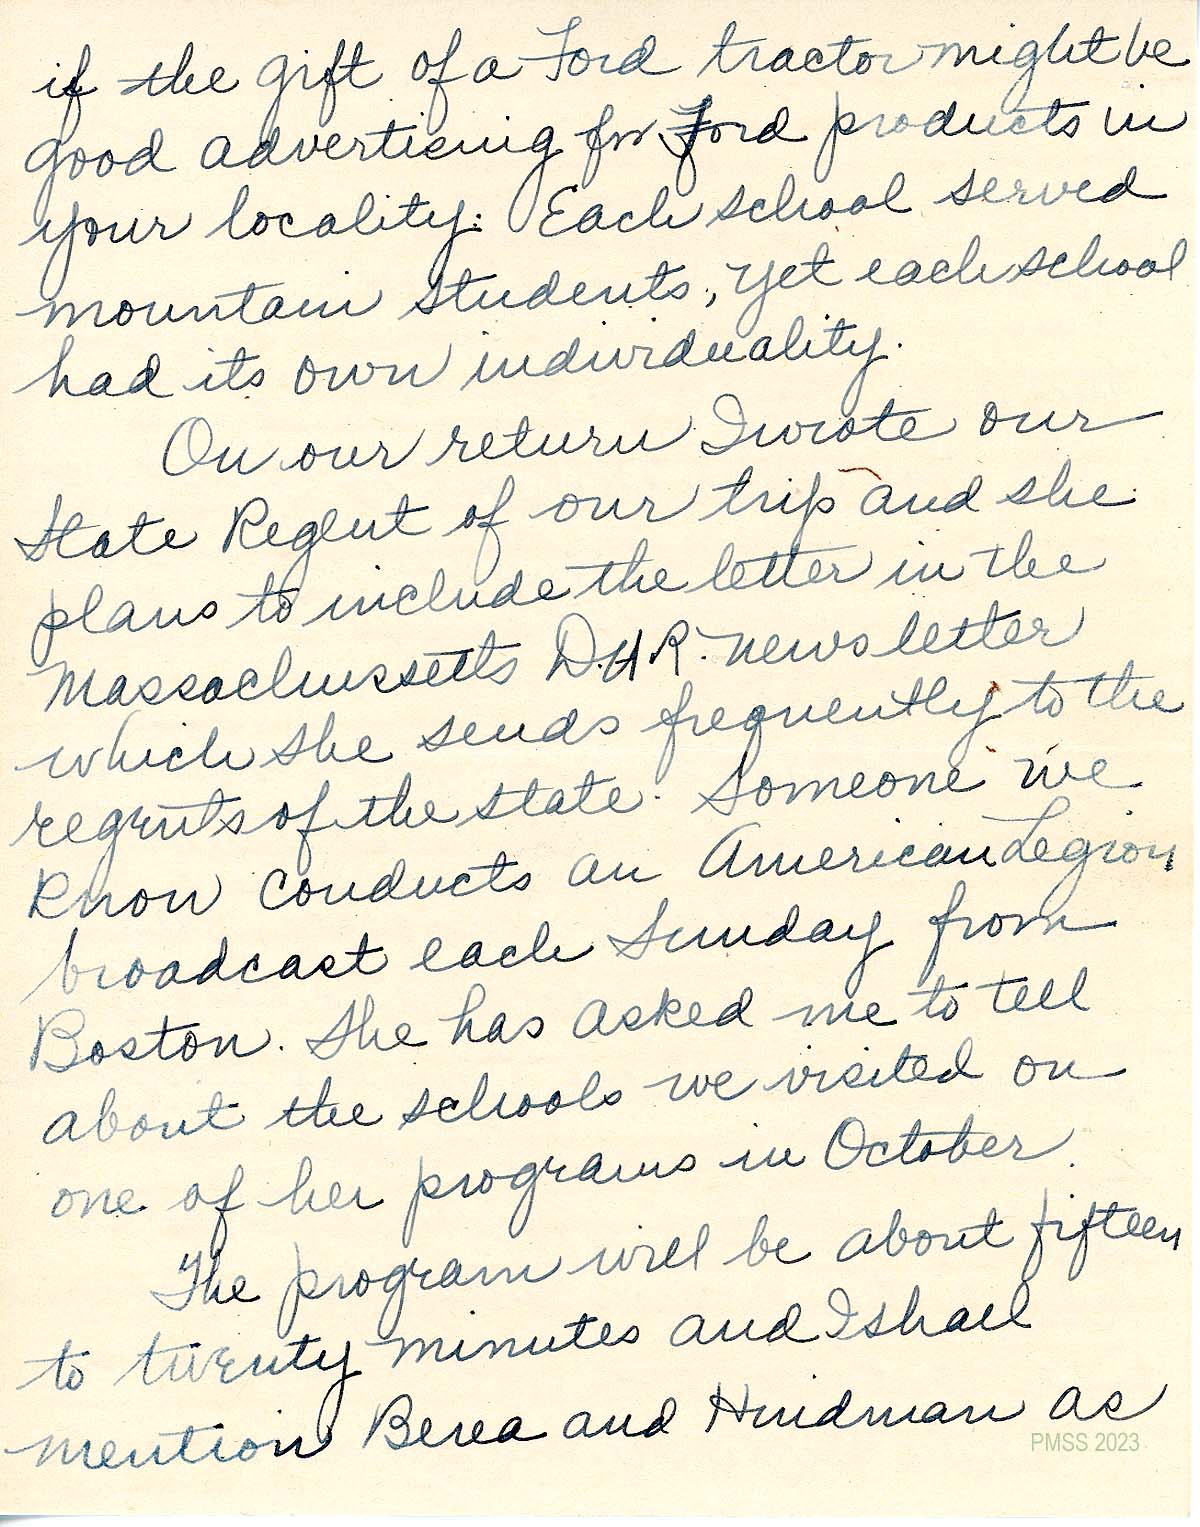 if the gift of a Ford tractor might be
good advertising for Ford products in
your locality. Each school served
mountain students, yet each school
had its own individuality.
On our return I wrote our
State Regent of our trip and she
plans to include the letter in the
Massachussetts D.A.R. news letter
which she sends frequently to the
regents of the state. Someone we
know conducts an American Legion
broadcast each Sunday from
Boston. She has asked me to tell
about the schools we visited on
one of her programs in October.
The program will be about fifteen
to twenty minutes and I shall
mention Berea and Hindman as
PMSS 2023